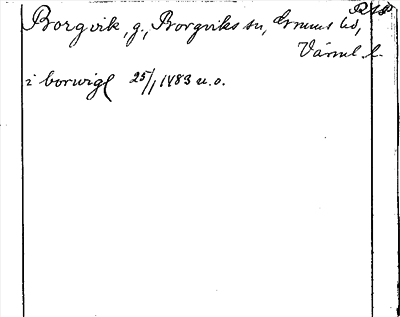 Borgvik, g., Borgviks sn, Grums hd,
Värml. l.
i borwigh 25/1 1483 u. o.